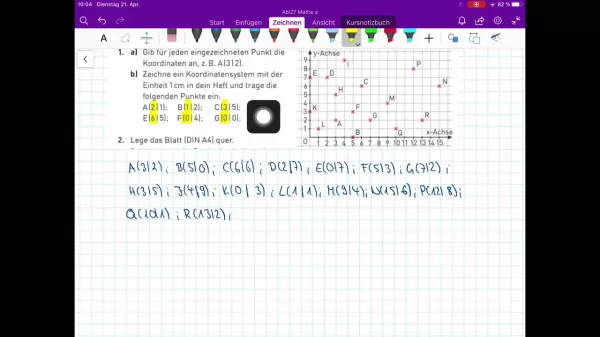 10:04 Dienstag 21. Apr.
82 %
Abi27 Mathe a
Start Einfügen Zeichnen Ansicht Kursnotizbuch
1. a) Gib für jeden eingezeichneten Punkt die
Koordinaten an, z. B. A(3|2).
b) Zeichne ein Koordinatensystem mit der
Einheit 1 cm in dein Heft und trage die
folgenden Punkte ein:
A(2|1); B(1|2); C(3|5);
E(6|5); F(0|4); G(0|0);
2. Lege das Blatt (DIN A4) quer.
y-Achse
9
8
7
6
5
4
3
2
1
I
P
E D
C N
H
M
K F
L A G R
Q
B
x-Achse
0 1 2 3 4 5 6 7 8 9 10 11 12 13 14 15
A(3|2); B(5|0); C(6|6); D(2|7); E(0|7); F(5|3); G(7|2);
H(3|5); J(4|9); K(0|3); L(1|1); M(9|4); N(15|6); P(12|8);
Q(10|1); R(13|2);